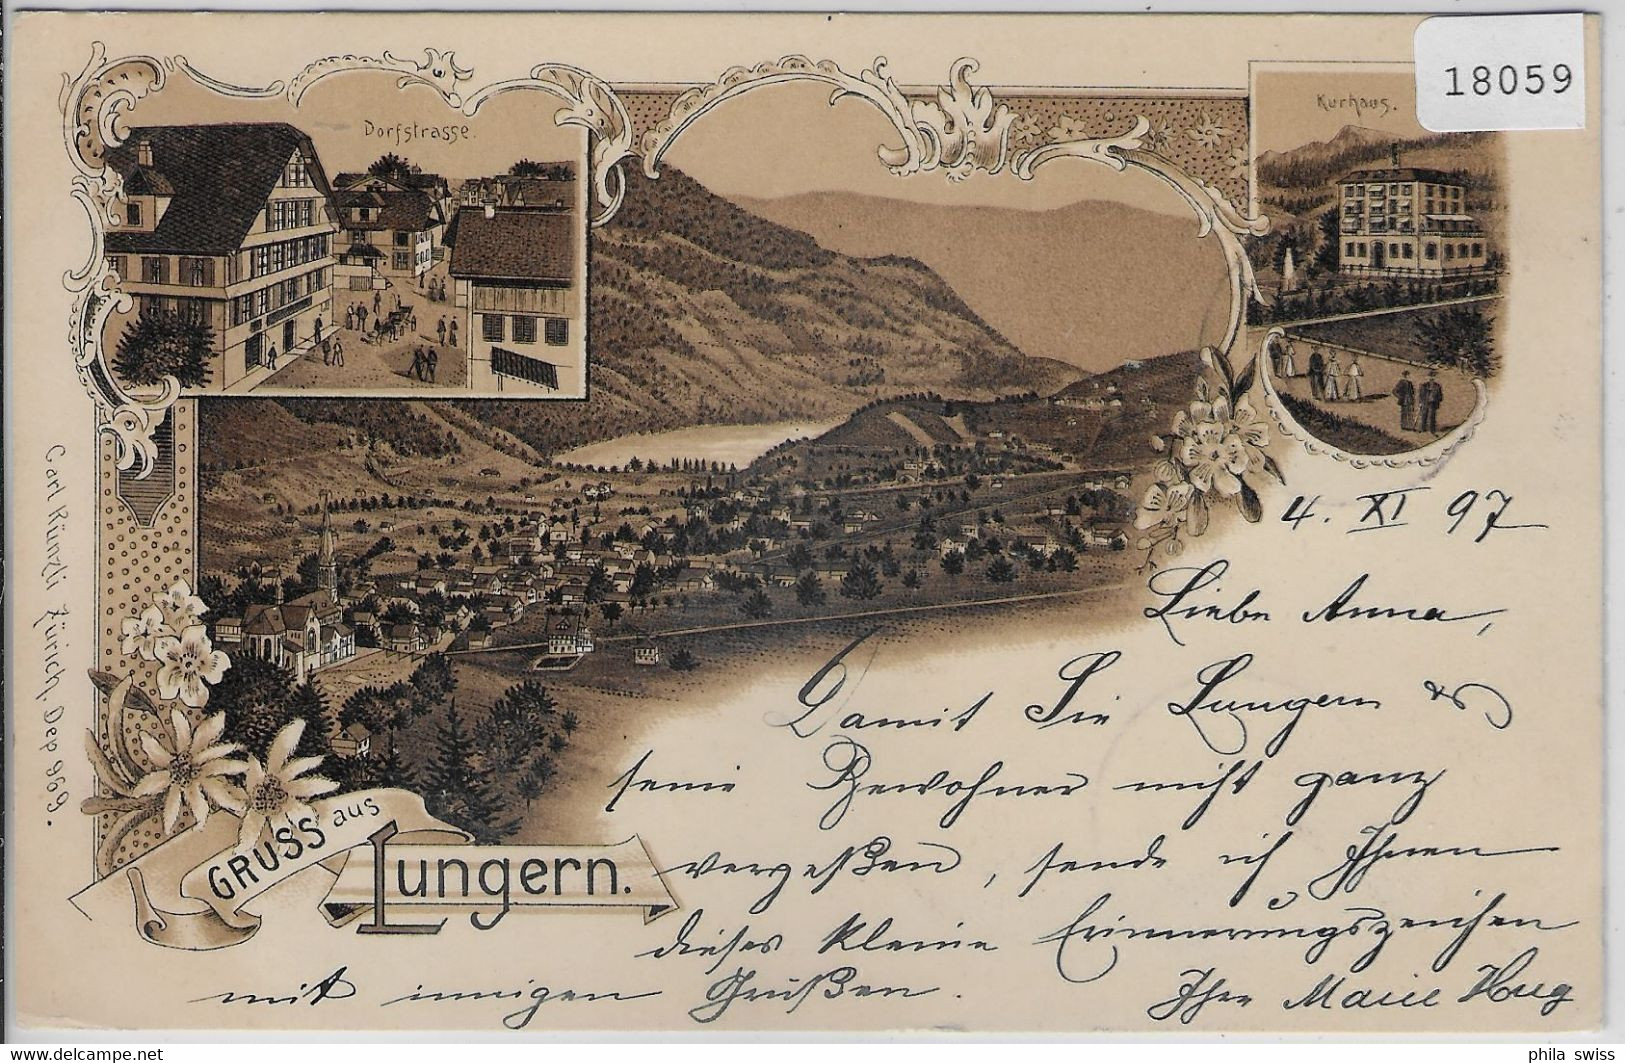 18059
Dorfstrasse.
Kurhaus.
4. XI 97
Liebe Anna,
Damit Sie Lungern &
seine Bewohner nicht ganz
vergeßen, sende ich Ihnen
dieses kleine Erinnerungszeichen
mit innigen Grüßen.
Ihre Marie Hug
GRUSS aus
Lungern.
Carl Künzli Zürich, Dep 969.
phila swiss